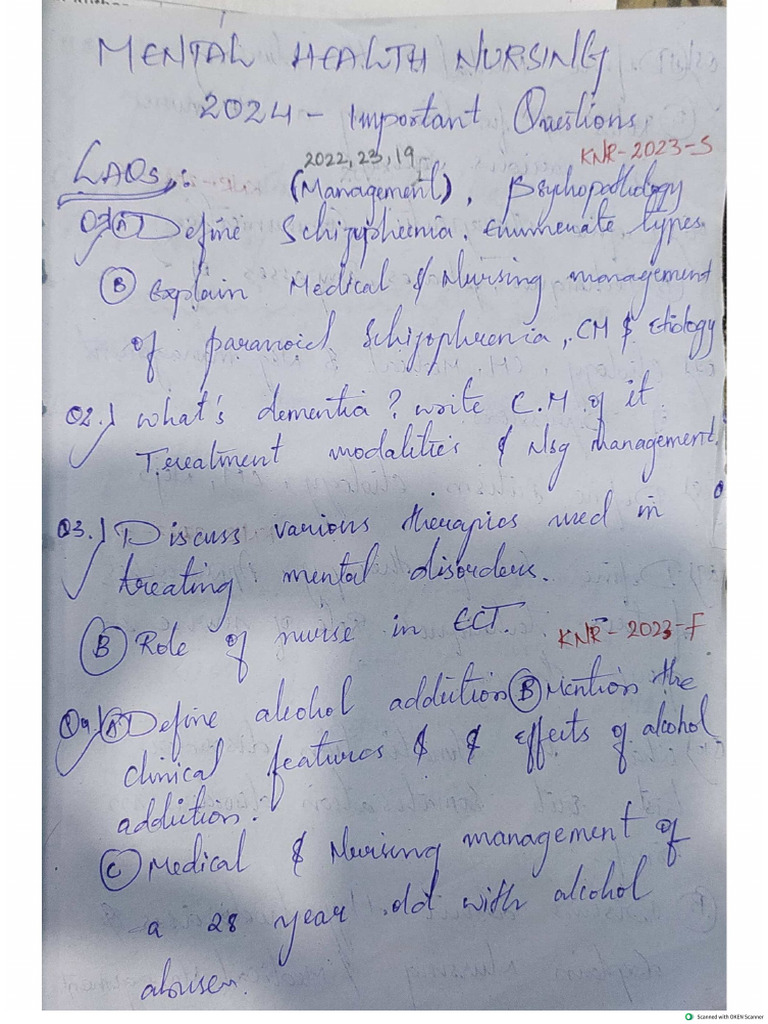 MENTAL HEALTH NURSING
2024 - Important Questions
LAQs:
2022, 23, 19
KNR-2023-S
(Management), Psychopathology
Q1) (A) Define Schizophrenia. Enumerate types.
(B) Explain Medical & Nursing management
of paranoid Schizophrenia, CM & Etiology
Q2.) What's dementia? write C.M. of it.
Treatment modalities & Nsg management.
Q3.) Discuss various therapies used in
treating mental disorders.
(B) Role of nurse in ECT.
KNR-2023-F
Q4.) (A) Define alcohol addiction (B) Mention the
clinical features & & effects of alcohol
addiction.
(C) Medical & Nursing management of
a 28 year old with alcohol
abuser.
Scanned with OKEN Scanner